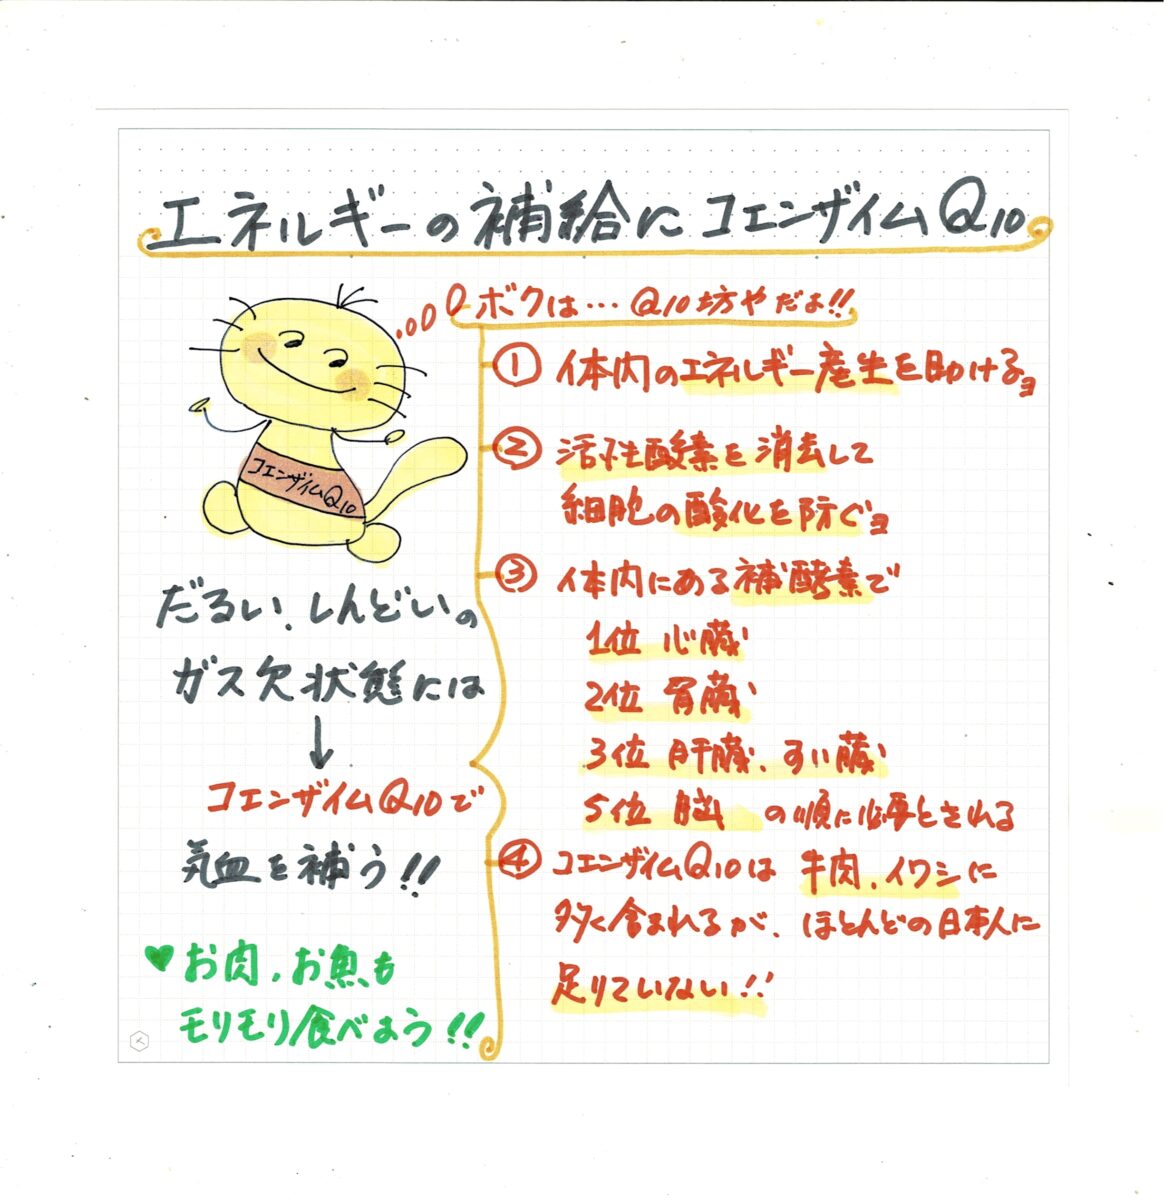 エネルギーの補給にコエンザイムQ10
ボクは…Q10坊やだよ!!
コエンザイムQ10
だるい、しんどいの
ガス欠状態には
↓
コエンザイムQ10で
気血を補う!!
♥お肉、お魚も
モリモリ食べよう!!
① 体内のエネルギー産生を助けるヨ
② 活性酸素を消去して
細胞の酸化を防ぐヨ
③ 体内にある補酵素で
1位 心臓
2位 腎臓
3位 肝臓、すい臓
5位 脳 の順に必要とされる
④ コエンザイムQ10は牛肉、イワシに
多く含まれるが、ほとんどの日本人に
足りていない!!